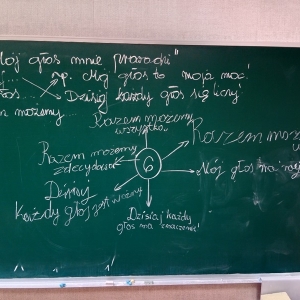 Mój głos mnie prowadzi"
np. Mój głos to moja moc!
głos... Dzisiaj każdy głos się liczy!
możemy...
Razem możemy wszystko
Razem może
Razem możemy
zdecydować
6
Mój głos ma
Dzisiaj
każdy głos jest ważny
Dzisiaj każdy
głos ma znaczenie